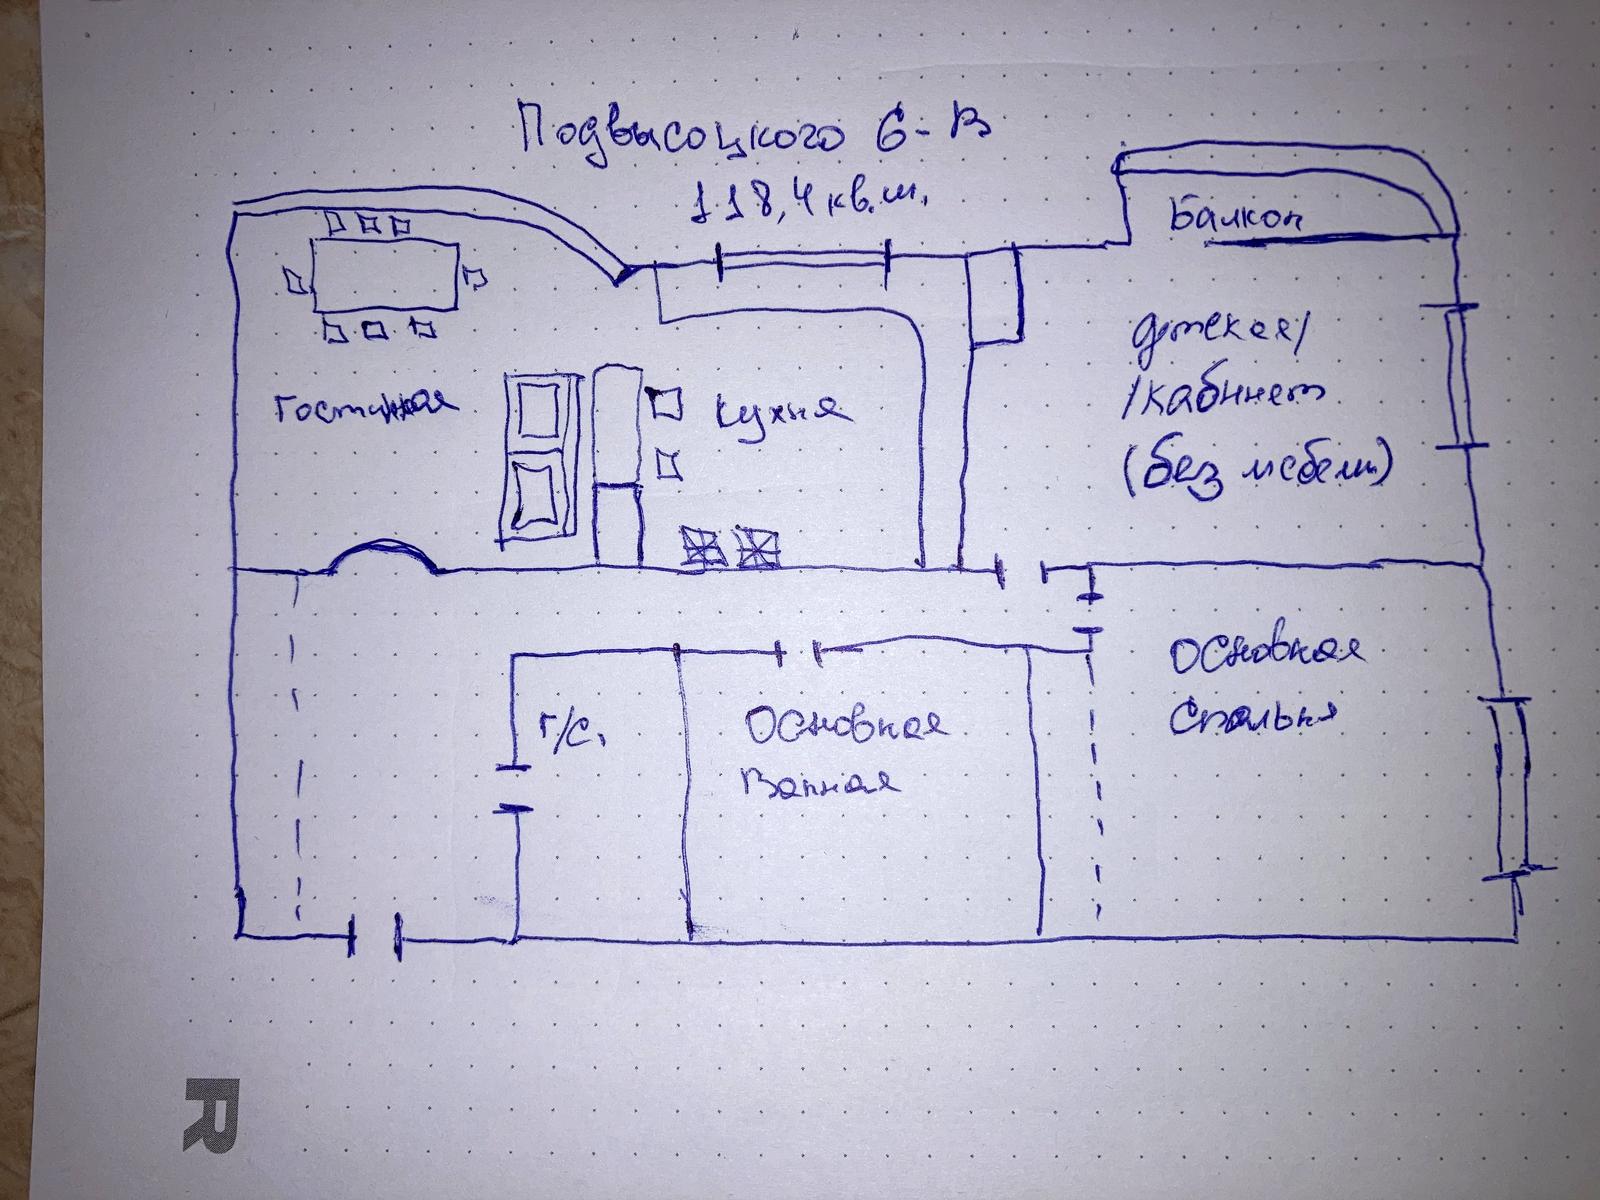 Подвысоцкого 6-В
118,4 кв.м.
Балкон
Гостиная
Кухня
детская/
/кабинет
(без мебели)
Основная
Спальня
г/с.
Основная
Ванная
R